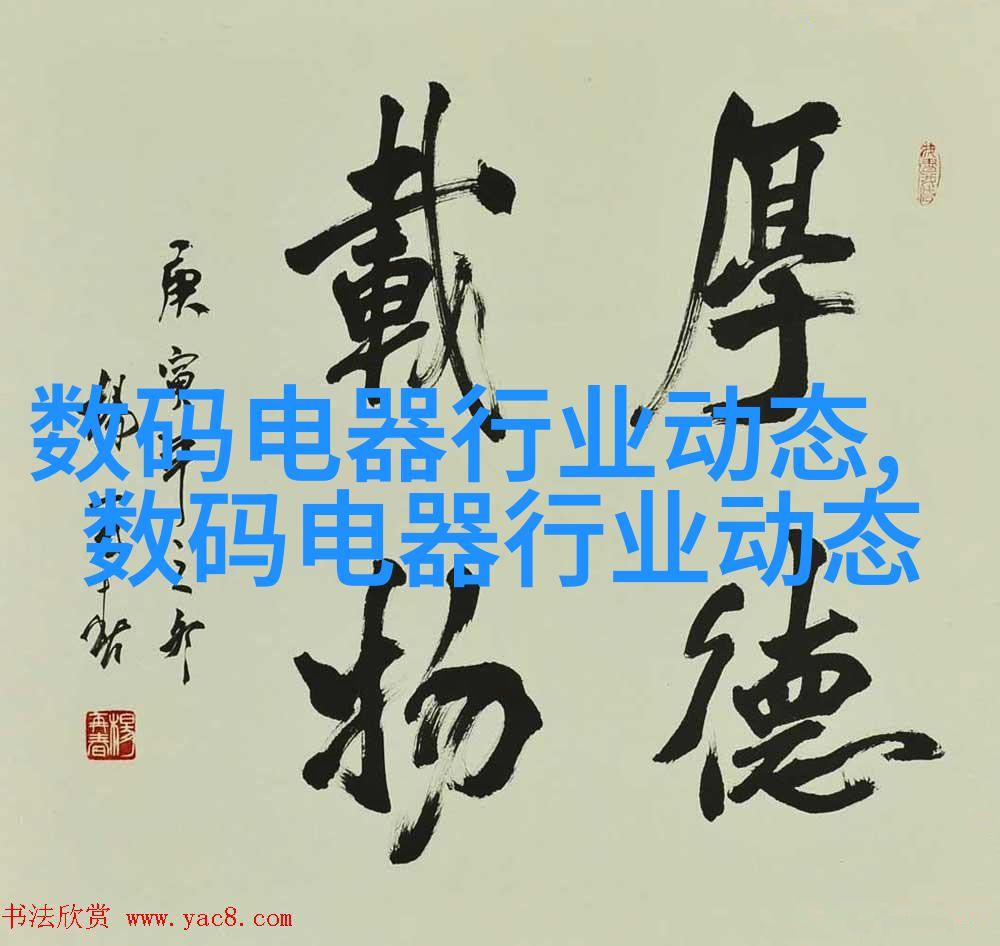 厚德
載物
庚寅年之夘
楊再春
数码电器行业动态,
数码电器行业动态
书法欣赏 www.yac8.com